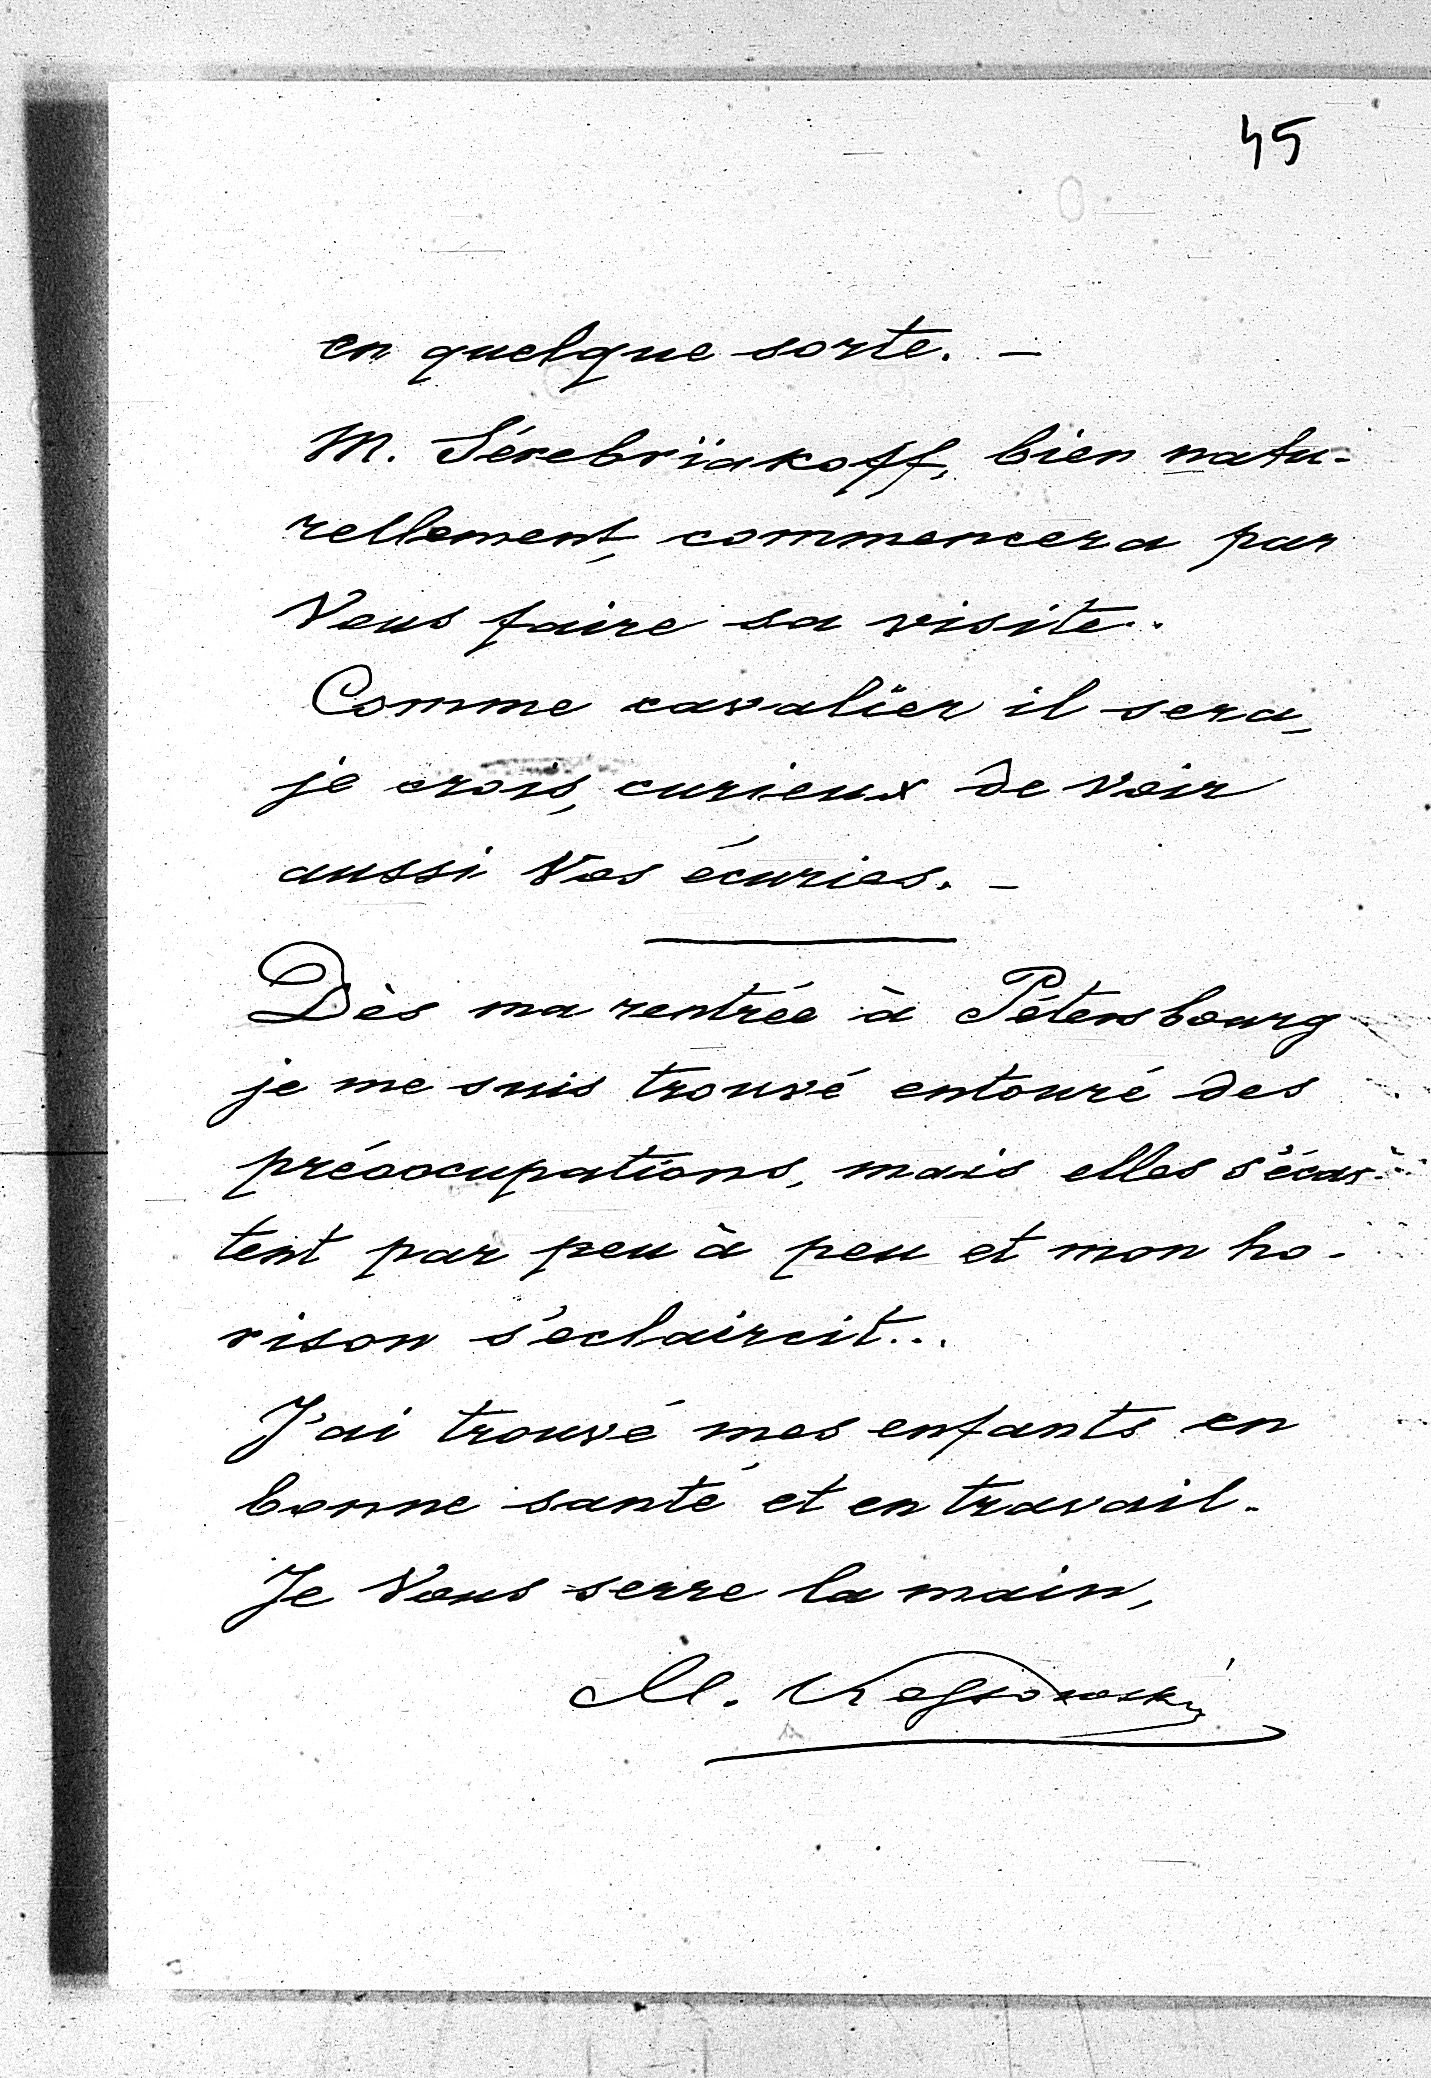 45
en quelque sorte. —
M. Sérebrïakoff, bien natu-
rellement, commencera par
Vous faire sa visite..
Comme cavalier il sera,
je crois, curieux de voir
aussi Vos écuries. —
Dès ma rentrée à Pétersbourg
je me suis trouvé entouré des
préoocupations, mais elles s'écar-
tent par peu à peu et mon ho-
rison s'eclaircit...
J'ai trouvé mes enfants en
bonne santé et en travail.
Je Vous serre la main,
M.